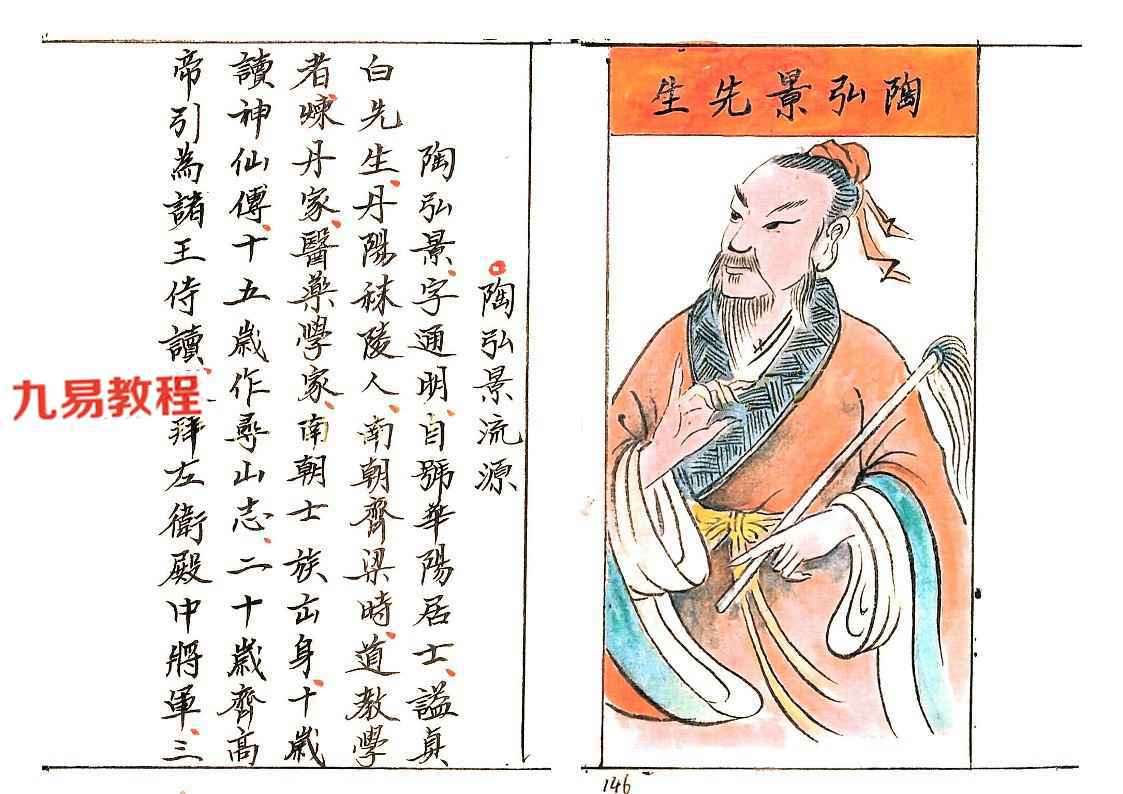 陶弘景先生
陶弘景流源
陶弘景、字通明、自號華陽居士、謚貞
白先生、丹陽秣陵人、南朝齊梁時、道教學
者、煉丹家、醫藥學家、南朝士族出身、十歲
讀神仙傳、十五歲作尋山志、二十歲齊高
帝引為諸王侍讀、拜左衛殿中將軍、三
九易教程
146